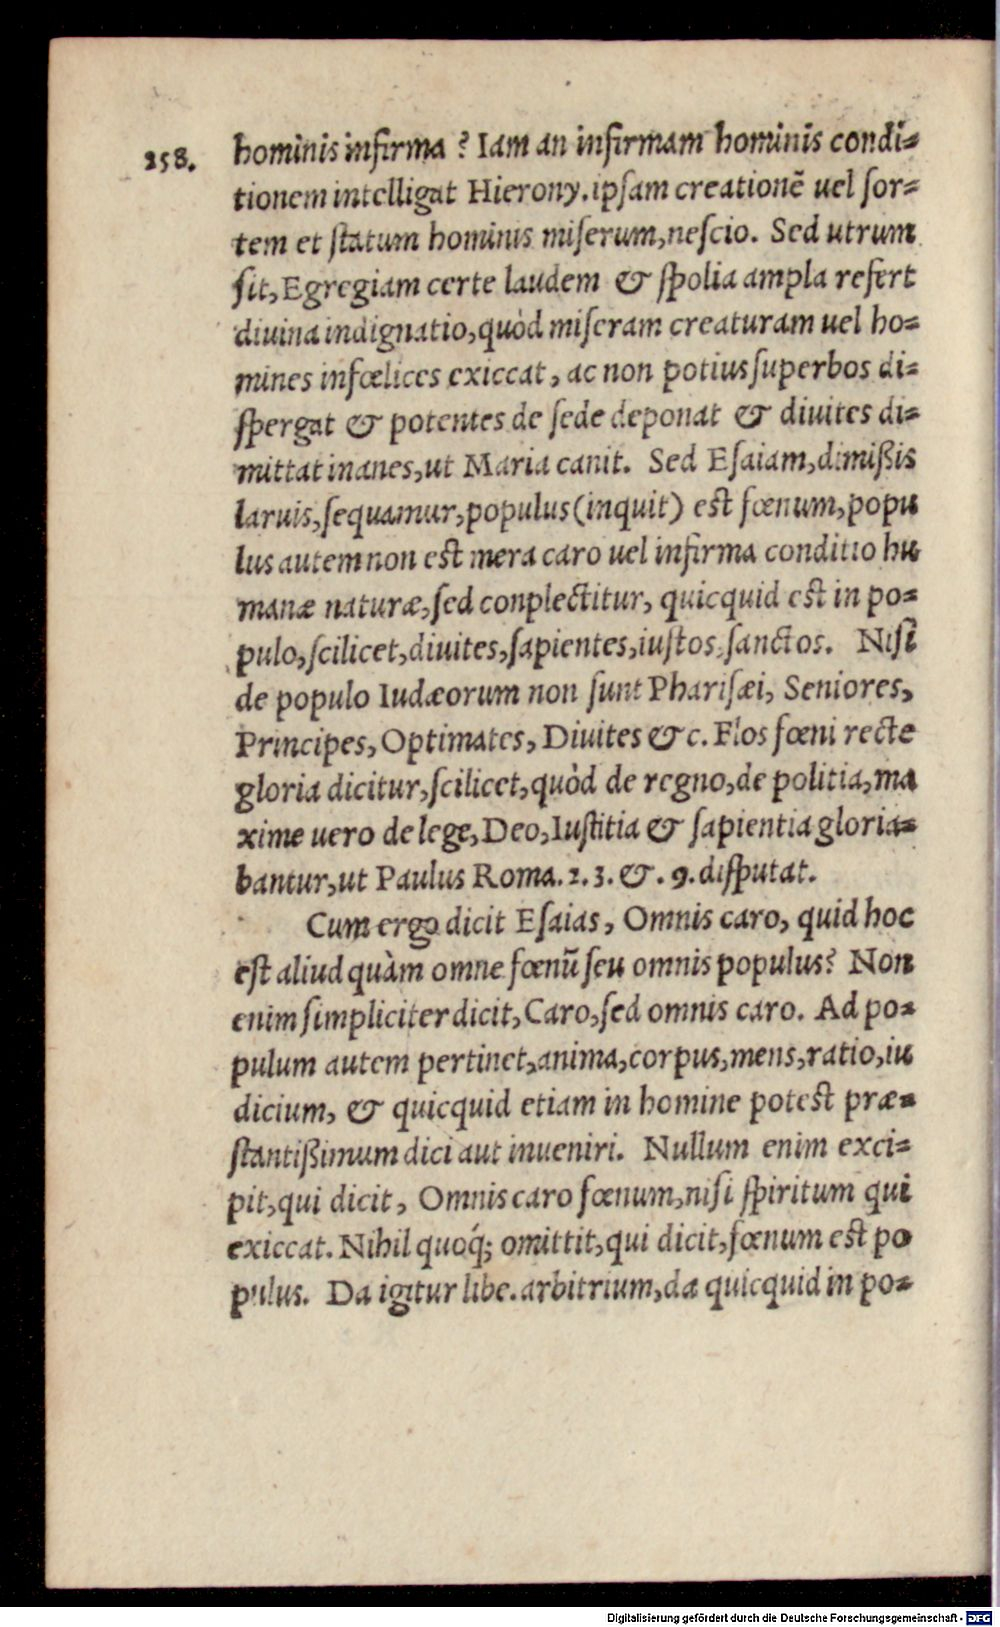 258.
hominis infirma ? Iam an infirmam hominis condi-
tionem intelligat Hierony. ipsam creationẽ uel sor-
tem et statum hominis miserum, nescio. Sed utrum
sit, Egregiam certe laudem & spolia ampla refert
diuina indignatio, quòd miseram creaturam uel ho-
mines infœlices exiccat, ac non potius superbos di-
spergat & potentes de sede deponat & diuites di-
mittat inanes, ut Maria canit. Sed Esaiam, dimißis
laruis, sequamur, populus (inquit) est fœnum, popu
lus autem non est mera caro uel infirma conditio hu
manæ naturæ, sed conplectitur, quicquid est in po-
pulo, scilicet, diuites, sapientes, iustos, sanctos. Nisi
de populo Iudæorum non sunt Pharisæi, Seniores,
Principes, Optimates, Diuites &c. Flos fœni recte
gloria dicitur, scilicet, quòd de regno, de politia, ma
xime uero de lege, Deo, Iustitia & sapientia gloria-
bantur, ut Paulus Roma. 2. 3. &. 9. disputat.
Cum ergo dicit Esaias, Omnis caro, quid hoc
est aliud quàm omne fœnũ seu omnis populus? Non
enim simpliciter dicit, Caro, sed omnis caro. Ad po-
pulum autem pertinet, anima, corpus, mens, ratio, iu
dicium, & quicquid etiam in homine potest præ-
stantißimum dici aut inueniri. Nullum enim exci-
pit, qui dicit, Omnis caro fœnum, nisi spiritum qui
exiccat. Nihil quoq́; omittit, qui dicit, fœnum est po
pulus. Da igitur libe. arbitrium, da quicquid in po-
Digitalisierung gefördert durch die Deutsche Forschungsgemeinschaft - DFG